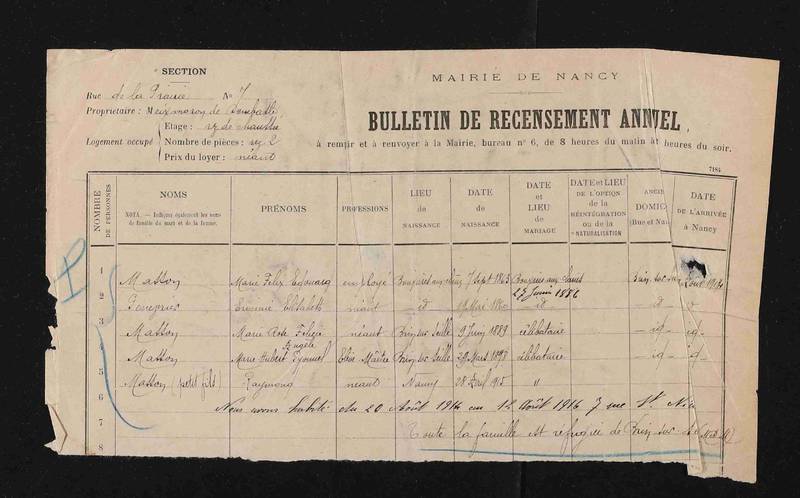 SECTION
MAIRIE DE NANCY
Rue de la Prairie No 7
Propriétaire : Meixmoron de Dombasle
BULLETIN DE RECENSEMENT ANNUEL,
Logement occupé
Etage : rez de chaussée
Nombre de pièces : 2
Prix du loyer : néant
à remplir et à renvoyer à la Mairie, bureau n° 6, de 8 heures du matin à heures du soir.
7184
NOMBRE DE PERSONNES
NOMS
NOTA. — Indiquer également les noms de famille du mari et de la femme.
PRÉNOMS
PROFESSIONS
LIEU de NAISSANCE
DATE de NAISSANCE
DATE et LIEU de MARIAGE
DATE et LIEU DE L'OPTION de la RÉINTÉGRATION ou de la NATURALISATION
DOMIC (Rue et Nu
DATE DE L'ARRIVÉE à Nancy
1 Masson Marie Felix Edouard employé 7 Sept 1863 Août 1914
2 Elisabeth néant id Mai 1860 27 Juin 1886 id
3 Masson Marie Rose Félicie néant Brin sur Seille 9 Juin 1889 célibataire id id
Angèle
4 Masson Marie Hubert Elève Maître Brin sur Seille 29 Mars 1898 célibataire id id
5 Masson (petit fils) Raymond néant Nancy 28 Avril 1915 "
6 Nous avons habité du 20 Août 1914 au 12 Août 1916 7 rue St Nic
7 Toute la famille est réfugiée de Brin sur
8